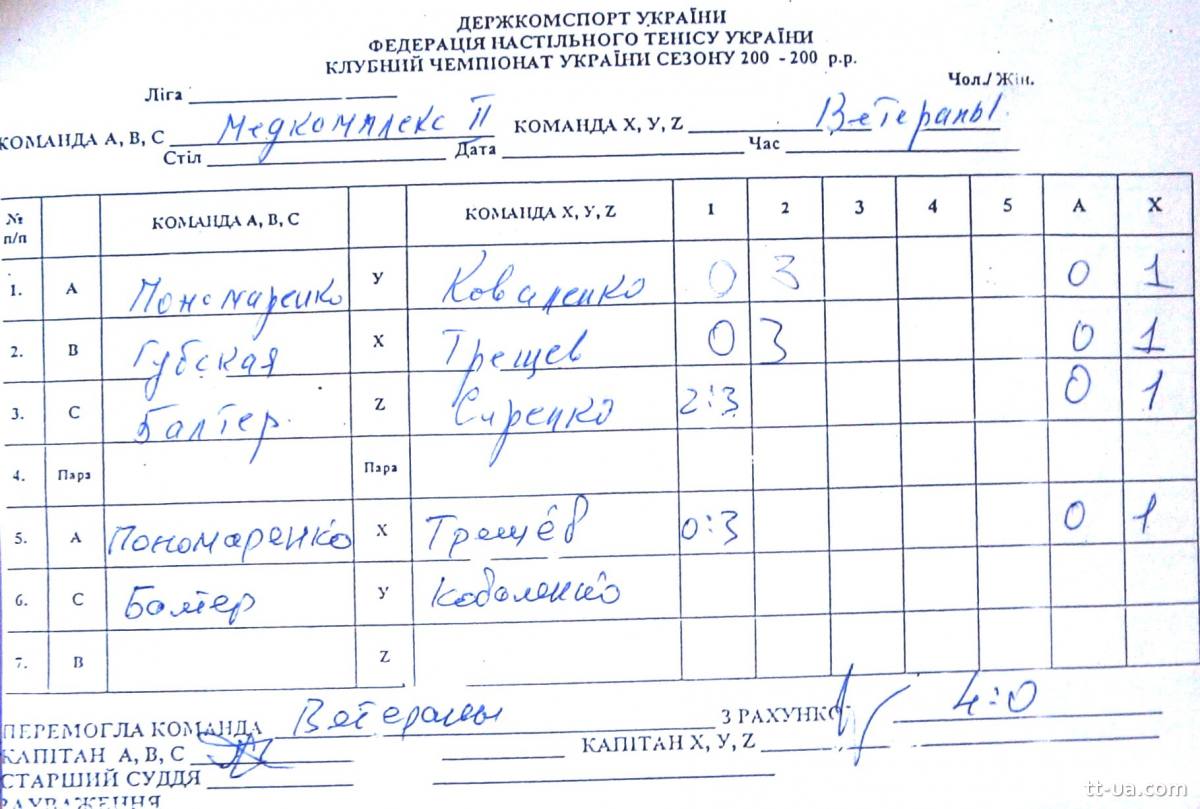 ДЕРЖКОМСПОРТ УКРАЇНИ
ФЕДЕРАЦІЯ НАСТІЛЬНОГО ТЕНІСУ УКРАЇНИ
КЛУБНИЙ ЧЕМПІОНАТ УКРАЇНИ СЕЗОНУ 200 - 200 р.р.
Чол./ Жін.
Ліга
КОМАНДА А, В, С Медкомплекс II КОМАНДА Х, У, Z Ветераны
Стіл Дата Час
№ п/п КОМАНДА А, В, С КОМАНДА Х, У, Z 1 2 3 4 5 А Х
1. А Пономаренко У Коваленко 0 3 0 1
2. В Губская Х Трещев 0 3 0 1
3. С Балтер. Z Сиренко 2:3 0 1
4. Пара Пара
5. А Пономаренко Х Трещёв 0:3 0 1
6. С Балтер У Коваленко
7. В Z
ПЕРЕМОГЛА КОМАНДА Ветераны З РАХУНКОМ 4:0
КАПІТАН А, В, С КАПІТАН Х, У, Z
СТАРШИЙ СУДДЯ
ЗАУВАЖЕННЯ
tt-ua.com